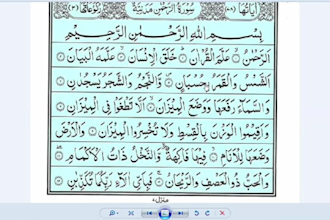 اٰيَاتُهَا ٧٨ سُوْرَةُ الرَّحْمٰنِ مَدَنِيَّةٌ رُكُوْعَاتُهَا ٣
بِسْمِ اللّٰهِ الرَّحْمٰنِ الرَّحِيْمِ
اَلرَّحْمٰنُ ۙ عَلَّمَ الْقُرْاٰنَ ؕ خَلَقَ الْاِنْسَانَ ۙ عَلَّمَهُ الْبَيَانَ
اَلشَّمْسُ وَالْقَمَرُ بِحُسْبَانٍ ۪ وَّالنَّجْمُ وَالشَّجَرُ يَسْجُدٰنِ
وَالسَّمَآءَ رَفَعَهَا وَوَضَعَ الْمِيْزَانَ ۙ اَلَّا تَطْغَوْا فِى الْمِيْزَانِ
وَاَقِيْمُوا الْوَزْنَ بِالْقِسْطِ وَلَا تُخْسِرُوا الْمِيْزَانَ وَالْاَرْضَ
وَضَعَهَا لِلْاَنَامِ ۙ فِيْهَا فَاكِهَةٌ وَّالنَّخْلُ ذَاتُ الْاَكْمَامِ
وَالْحَبُّ ذُو الْعَصْفِ وَالرَّيْحَانُ ۚ فَبِاَىِّ اٰلَآءِ رَبِّكُمَا تُكَذِّبٰنِ
منزل ٧